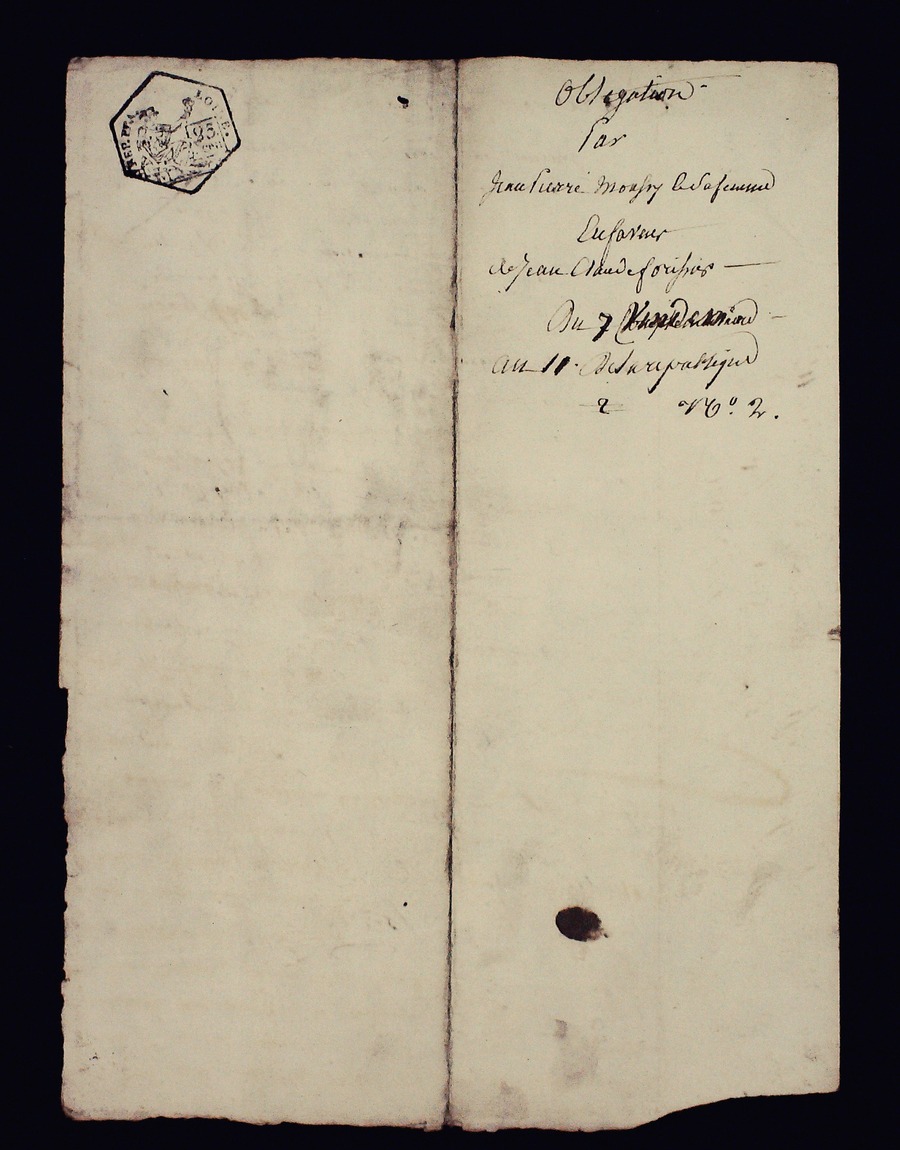 LOIRE.
25
Obligation
Par
Jean Pierre Monssy et Sa femme
En faveur
de Jean Claude
Du 7
an 11. De la republique
2 No. 2.